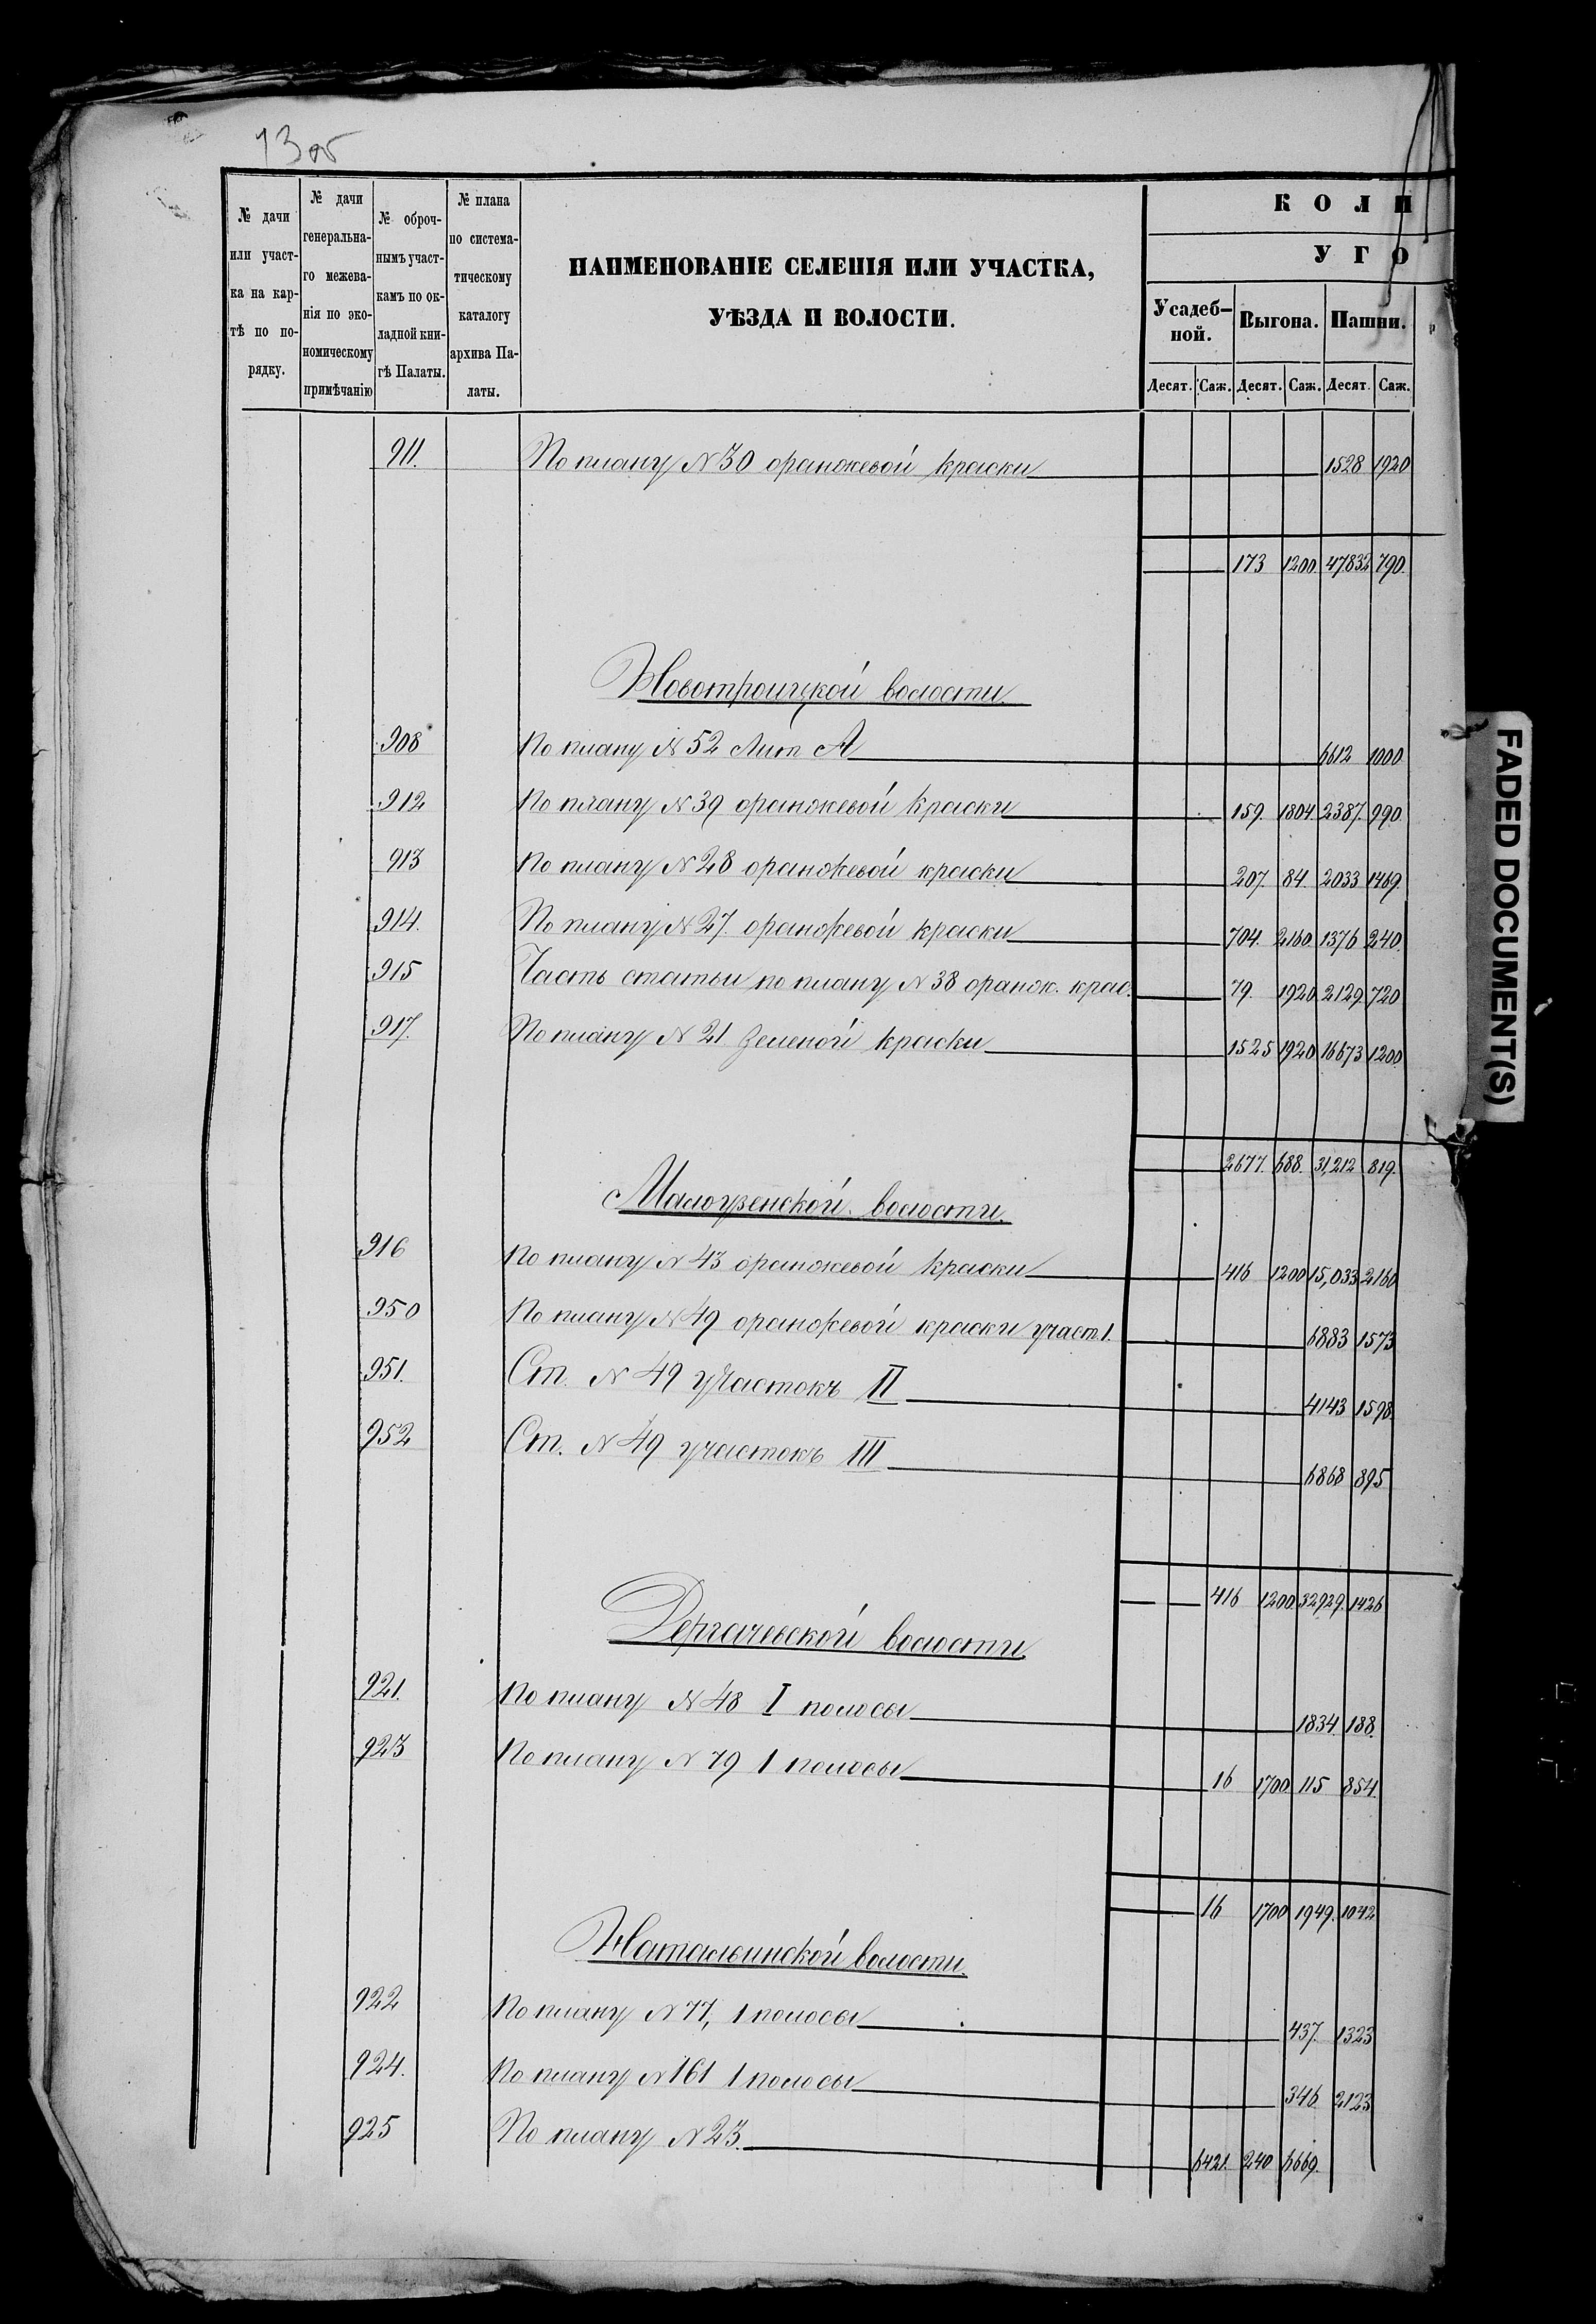 13 об
№ дачи или участка на картѣ по порядку.
№ дачи генеральнаго межеванія по экономическому примѣчанію
№ оброчнымъ участкамъ по окладной книгѣ Палаты.
№ плана по систематическому каталогу архива Палаты.
НАИМЕНОВАНІЕ СЕЛЕНІЯ ИЛИ УЧАСТКА,
УѢЗДА И ВОЛОСТИ.
КОЛИ
УГО
Усадеб-ной. Выгона. Пашни.
Десят. Саж. Десят. Саж. Десят. Саж.
911. По плану № 30 оранжевой краски 1528 1920
173 1200 47832 790.
Новотроицкой волости.
908 По плану № 52 Лит А 6612 1000
912 По плану № 39 оранжевой краски 159. 1804. 2387. 990.
913 По плану № 28 оранжевой краски 207. 84. 2033 1469.
914. По плану № 27. оранжевой краски 704. 2160. 1376 240.
915 Часть статьи по плану № 38 оранж. крас. 79. 1920. 2129. 720
917. По плану № 21 зеленой краски 1525 1920 16673 1200.
2677. 688. 31,212 819.
Малоузенской волости.
916 По плану № 43 оранжевой краски 416 1200 15,033 2160
950 По плану № 49 оранжевой краски участ 1. 6883 1573
951. Ст. № 49 участокъ II 4143 1598.
952 Ст. № 49 участокъ III 6868 895
416 1200. 32929. 1426
Дергачевской волости.
921. По плану № 48 I полосы 1834. 188.
923 По плану № 79 1 полосы 16 1700. 115 854.
16 1700 1949. 1042
Натальинской волости.
922 По плану № 77, 1 полосы 437. 1323
924. По плану № 161 1 полосы 346. 2123
925 По плану № 23. 6421. 240 6669.
FADED DOCUMENT(S)